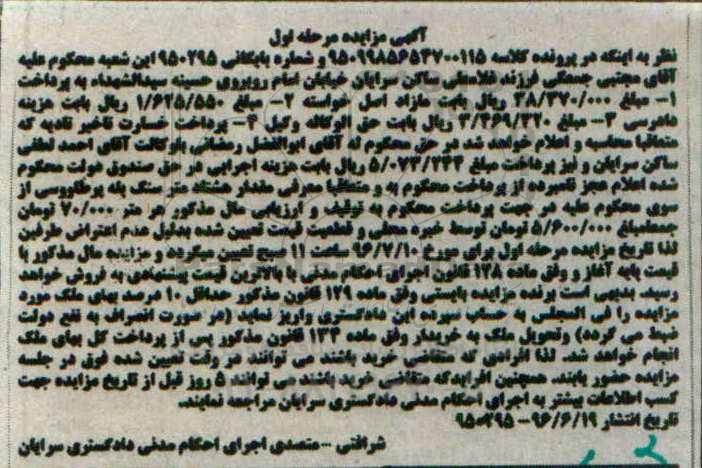 آگهی مزایده مرحله اول
نظر به اینکه در پرونده کلاسه ۹۵۰۹۹۸۵۶۵۳۷۰۰۱۱۵ و شماره بایگانی ۹۵۰۲۹۵ این شعبه محکوم علیه
آقای مجتبی جمعگی فرزند غلامعلی ساکن سرایان خیابان امام روبروی حسینیه سیدالشهداء به پرداخت
۱- مبلغ ۳۸/۳۷۰/۰۰۰ ریال بابت مازاد اصل خواسته ۲- مبلغ ۱/۶۲۵/۵۵۰ ریال بابت هزینه
دادرسی ۳- مبلغ ۳/۴۶۹/۳۲۰ ریال بابت حق الوکاله وکیل ۴- پرداخت خسارت تاخیر تادیه که
متعاقبا محاسبه و اعلام خواهد شد در حق محکوم له آقای ابوالفضل رمضانی باوکالت آقای احمد لطفی
ساکن سرایان و نیز پرداخت مبلغ ۵/۰۷۳/۲۴۴ ریال بابت هزینه اجرایی در حق صندوق دولت محکوم
شده اعلام عجز نامبرده از پرداخت محکوم به و متعاقبا معرفی مقدار هشتاد متر سنگ پله پرطاووسی از
سوی محکوم علیه در جهت پرداخت محکوم به توقیف و ارزیابی مال مذکور هر متر ۷۰/۰۰۰ تومان
جمعامبلغ ۵/۶۰۰/۰۰۰ تومان توسط خبره محلی و قطعیت قیمت تعیین شده بدلیل عدم اعتراض طرفین
لذا تاریخ مزایده مرحله اول برای مورخ ۹۶/۷/۱۰ ساعت ۱۱ صبح تعیین میگردد و مزایده مال مذکور با
قیمت پایه آغاز و وفق ماده ۱۲۸ قانون اجرای احکام مدنی با بالاترین قیمت پیشنهادی به فروش خواهد
رسید. بدیهی است برنده مزایده بایستی وفق ماده ۱۲۹ قانون مذکور حداقل ۱۰ درصد بهای ملک مورد
مزایده را فی المجلس به حساب سپرده این دادگستری واریز نماید (در صورت انصراف به نفع دولت
ضبط می گردد) وتحویل ملک به خریدار وفق ماده ۱۳۴ قانون مذکور پس از پرداخت کل بهای ملک
انجام خواهد شد. لذا افرادی که متقاضی خرید باشند می توانند در وقت تعیین شده فوق در جلسه
مزایده حضور یابند. همچنین افرادیکه متقاضی خرید باشند می توانند ۵ روز قبل از تاریخ مزایده جهت
کسب اطلاعات بیشتر به اجرای احکام مدنی دادگستری سرایان مراجعه نمایند.
تاریخ انتشار ۹۶/۶/۱۹ - ۹۵۰۲۹۵
شرافتی - متصدی اجرای احکام مدنی دادگستری سرایان